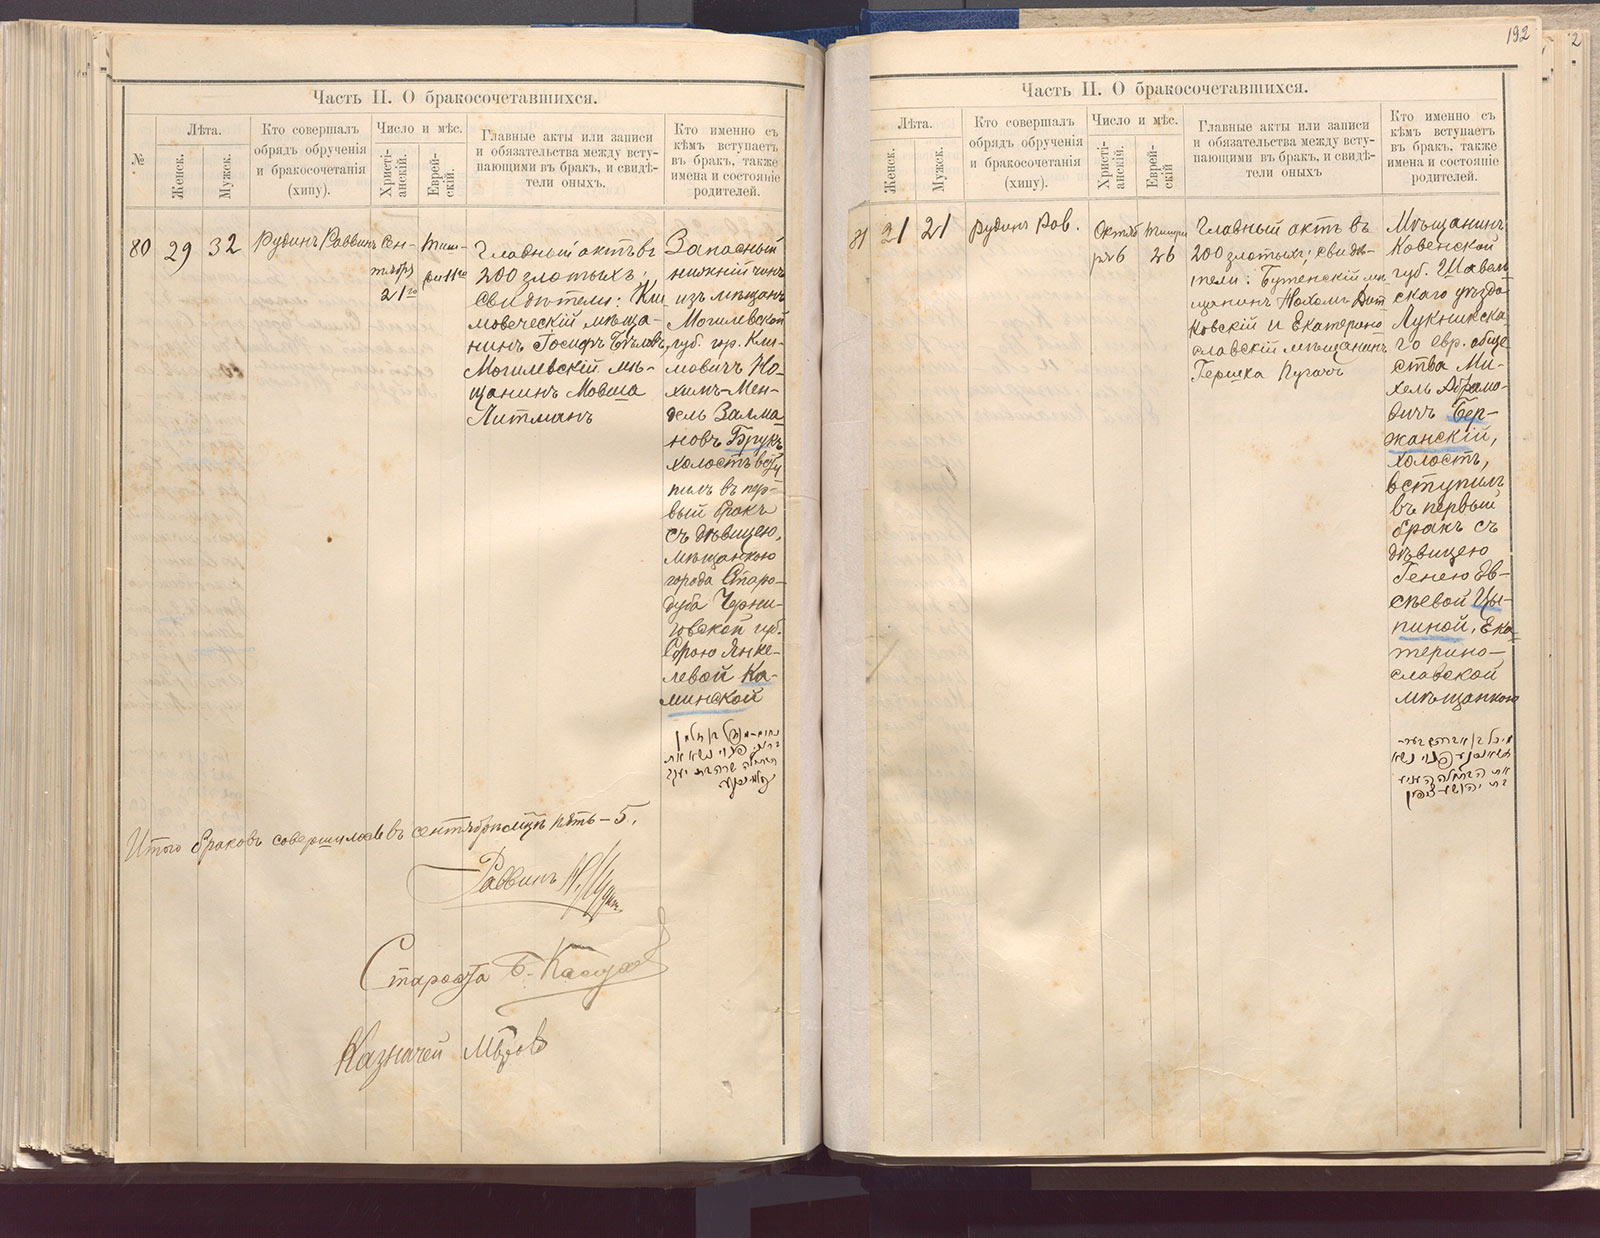 Часть II. О бракосочетавшихся.
№
Лѣта.
Женск.
Мужск.
Кто совершалъ
обрядъ обрученія
и бракосочетанія
(хипу).
Число и мѣс.
Христі-
анскій.
Еврей-
скій.
Главные акты или записи
и обязательства между всту-
пающими въ бракъ, и свидѣ-
тели оныхъ.
Кто именно съ
кѣмъ вступаетъ
въ бракъ, также
имена и состояніе
родителей.
80
29
32
Рудинъ Раввинъ
Сен-
тября
21го
Тиш-
ри 11го
Главный актъ въ
200 злотыхъ;
свидѣтели: Кли
мовеческій мѣща-
нинъ Іосифъ Бѣловъ,
Могилевскій мѣ-
щанинъ Мовша
Литманъ
Запасный
нижній чинъ
изъ мѣщанъ
Могилевской
губ. гор. Кли-
мовичъ Но-
химъ-Мен-
дель Залма
новъ Брукъ
холостъ всту
пилъ въ пер-
вый бракъ
съ дѣвицею,
мѣщанкою
города Старо-
дуба Черни-
говской губ.
Сорою Янке-
левой Ка-
минской
Итого браковъ совершилось въ сентябрѣ мцѣ пять-5.
Раввинъ
Староста Б.
Казначей
192
2
Часть II. О бракосочетавшихся.
Лѣта.
Женск.
Мужск.
Кто совершалъ
обрядъ обрученія
и бракосочетанія
(хипу).
Число и мѣс.
Христі-
анскій.
Еврей-
скій
Главные акты или записи
и обязательства между всту-
пающими въ бракъ, и свидѣ-
тели оныхъ
Кто именно съ
кѣмъ вступаетъ
въ бракъ, также
имена и состояніе
родителей.
81
21
21
Рудинъ Рав.
Октяб
ря 6
Тишри
26
Главный актъ въ
200 злотыхъ; свидѣ-
тели: мѣ
щанинъ Нохомъ
ковскій и Екатерино
славскій мѣщанинъ
Гершка Пугачъ
Мѣщанинъ
Ковенской
губ. Шавель
скаго уѣзда
Лукникска-
го евр. обще
ства Ми-
хель Абрамо-
вичъ Бер-
жанскій,
холостъ,
вступилъ
въ первый
бракъ съ
дѣвицею
Генею Ев-
сѣевой Цы-
пиной, Ека-
терино-
славской
мѣщанкою